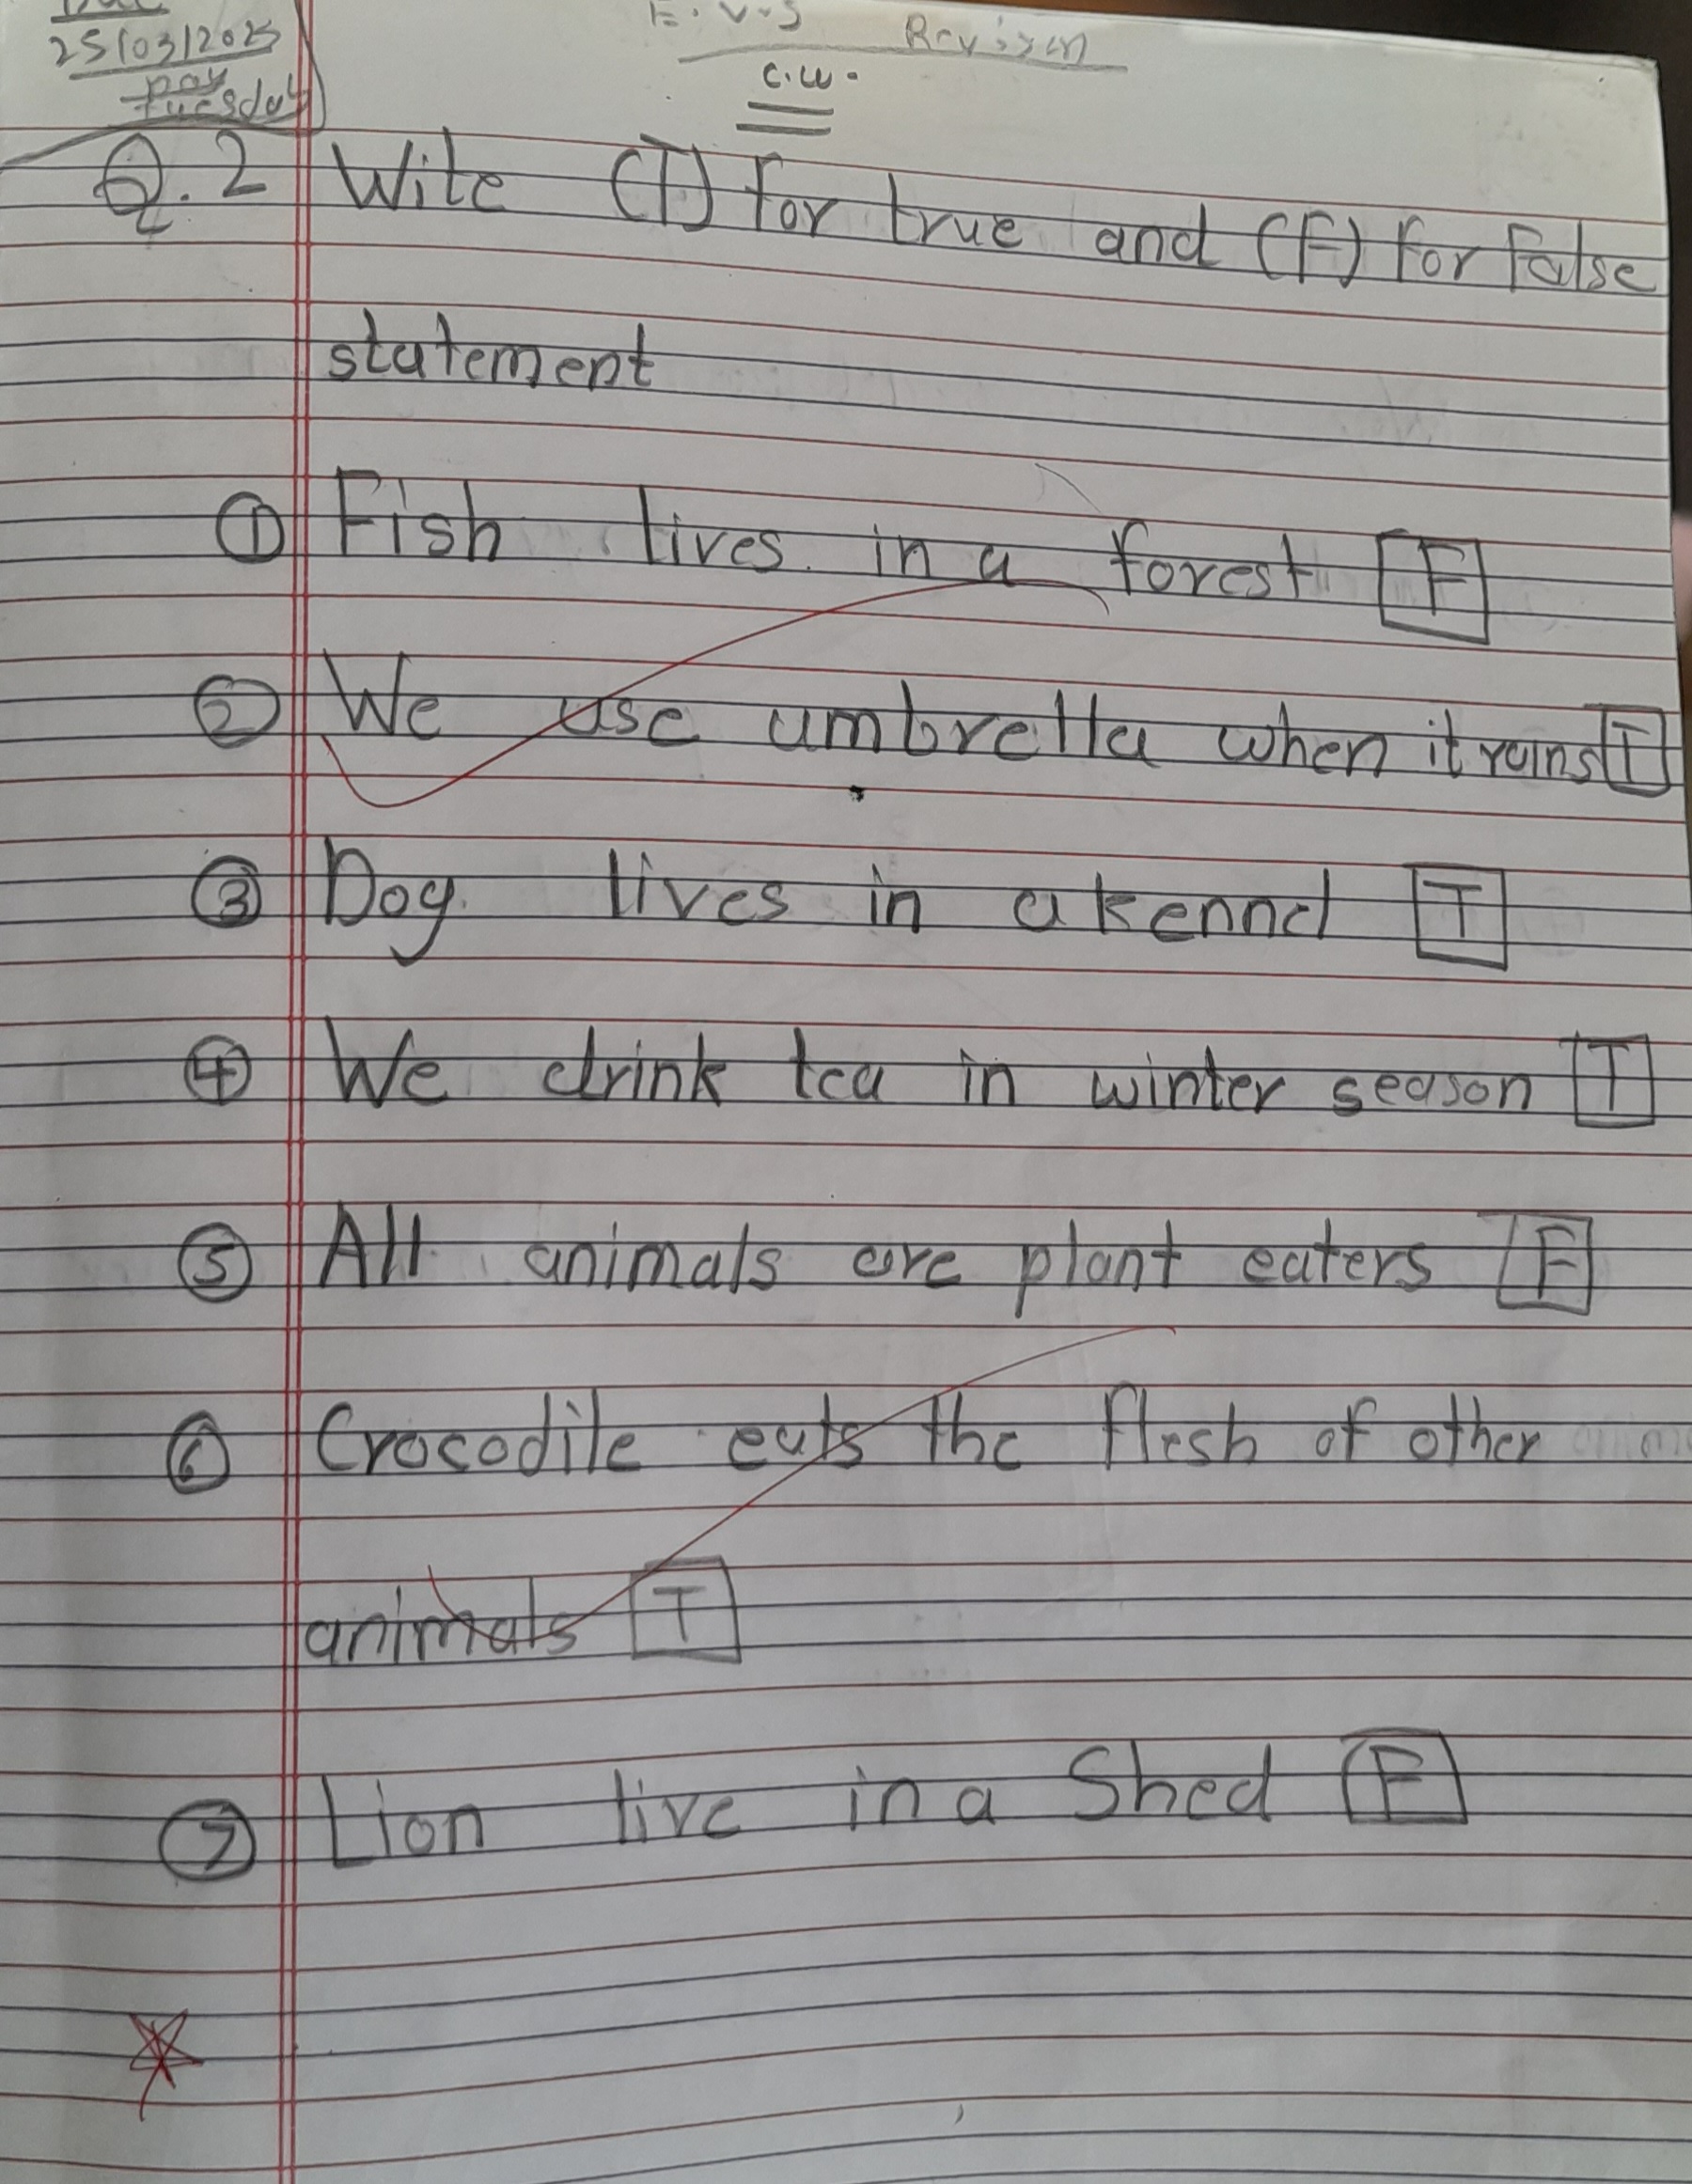 Date
25/03/2025
Day
Tuesday
E.V.S Revision
C.W.
Q.2 Wite (T) for true and (F) for false
statement
① Fish lives in a forest F
② We use umbrella when it rains T
③ Dog lives in a kennel T
④ We drink tea in winter season T
⑤ All animals are plant eaters F
⑥ Crocodile eats the flesh of other
animals T
⑦ Lion live in a Shed F